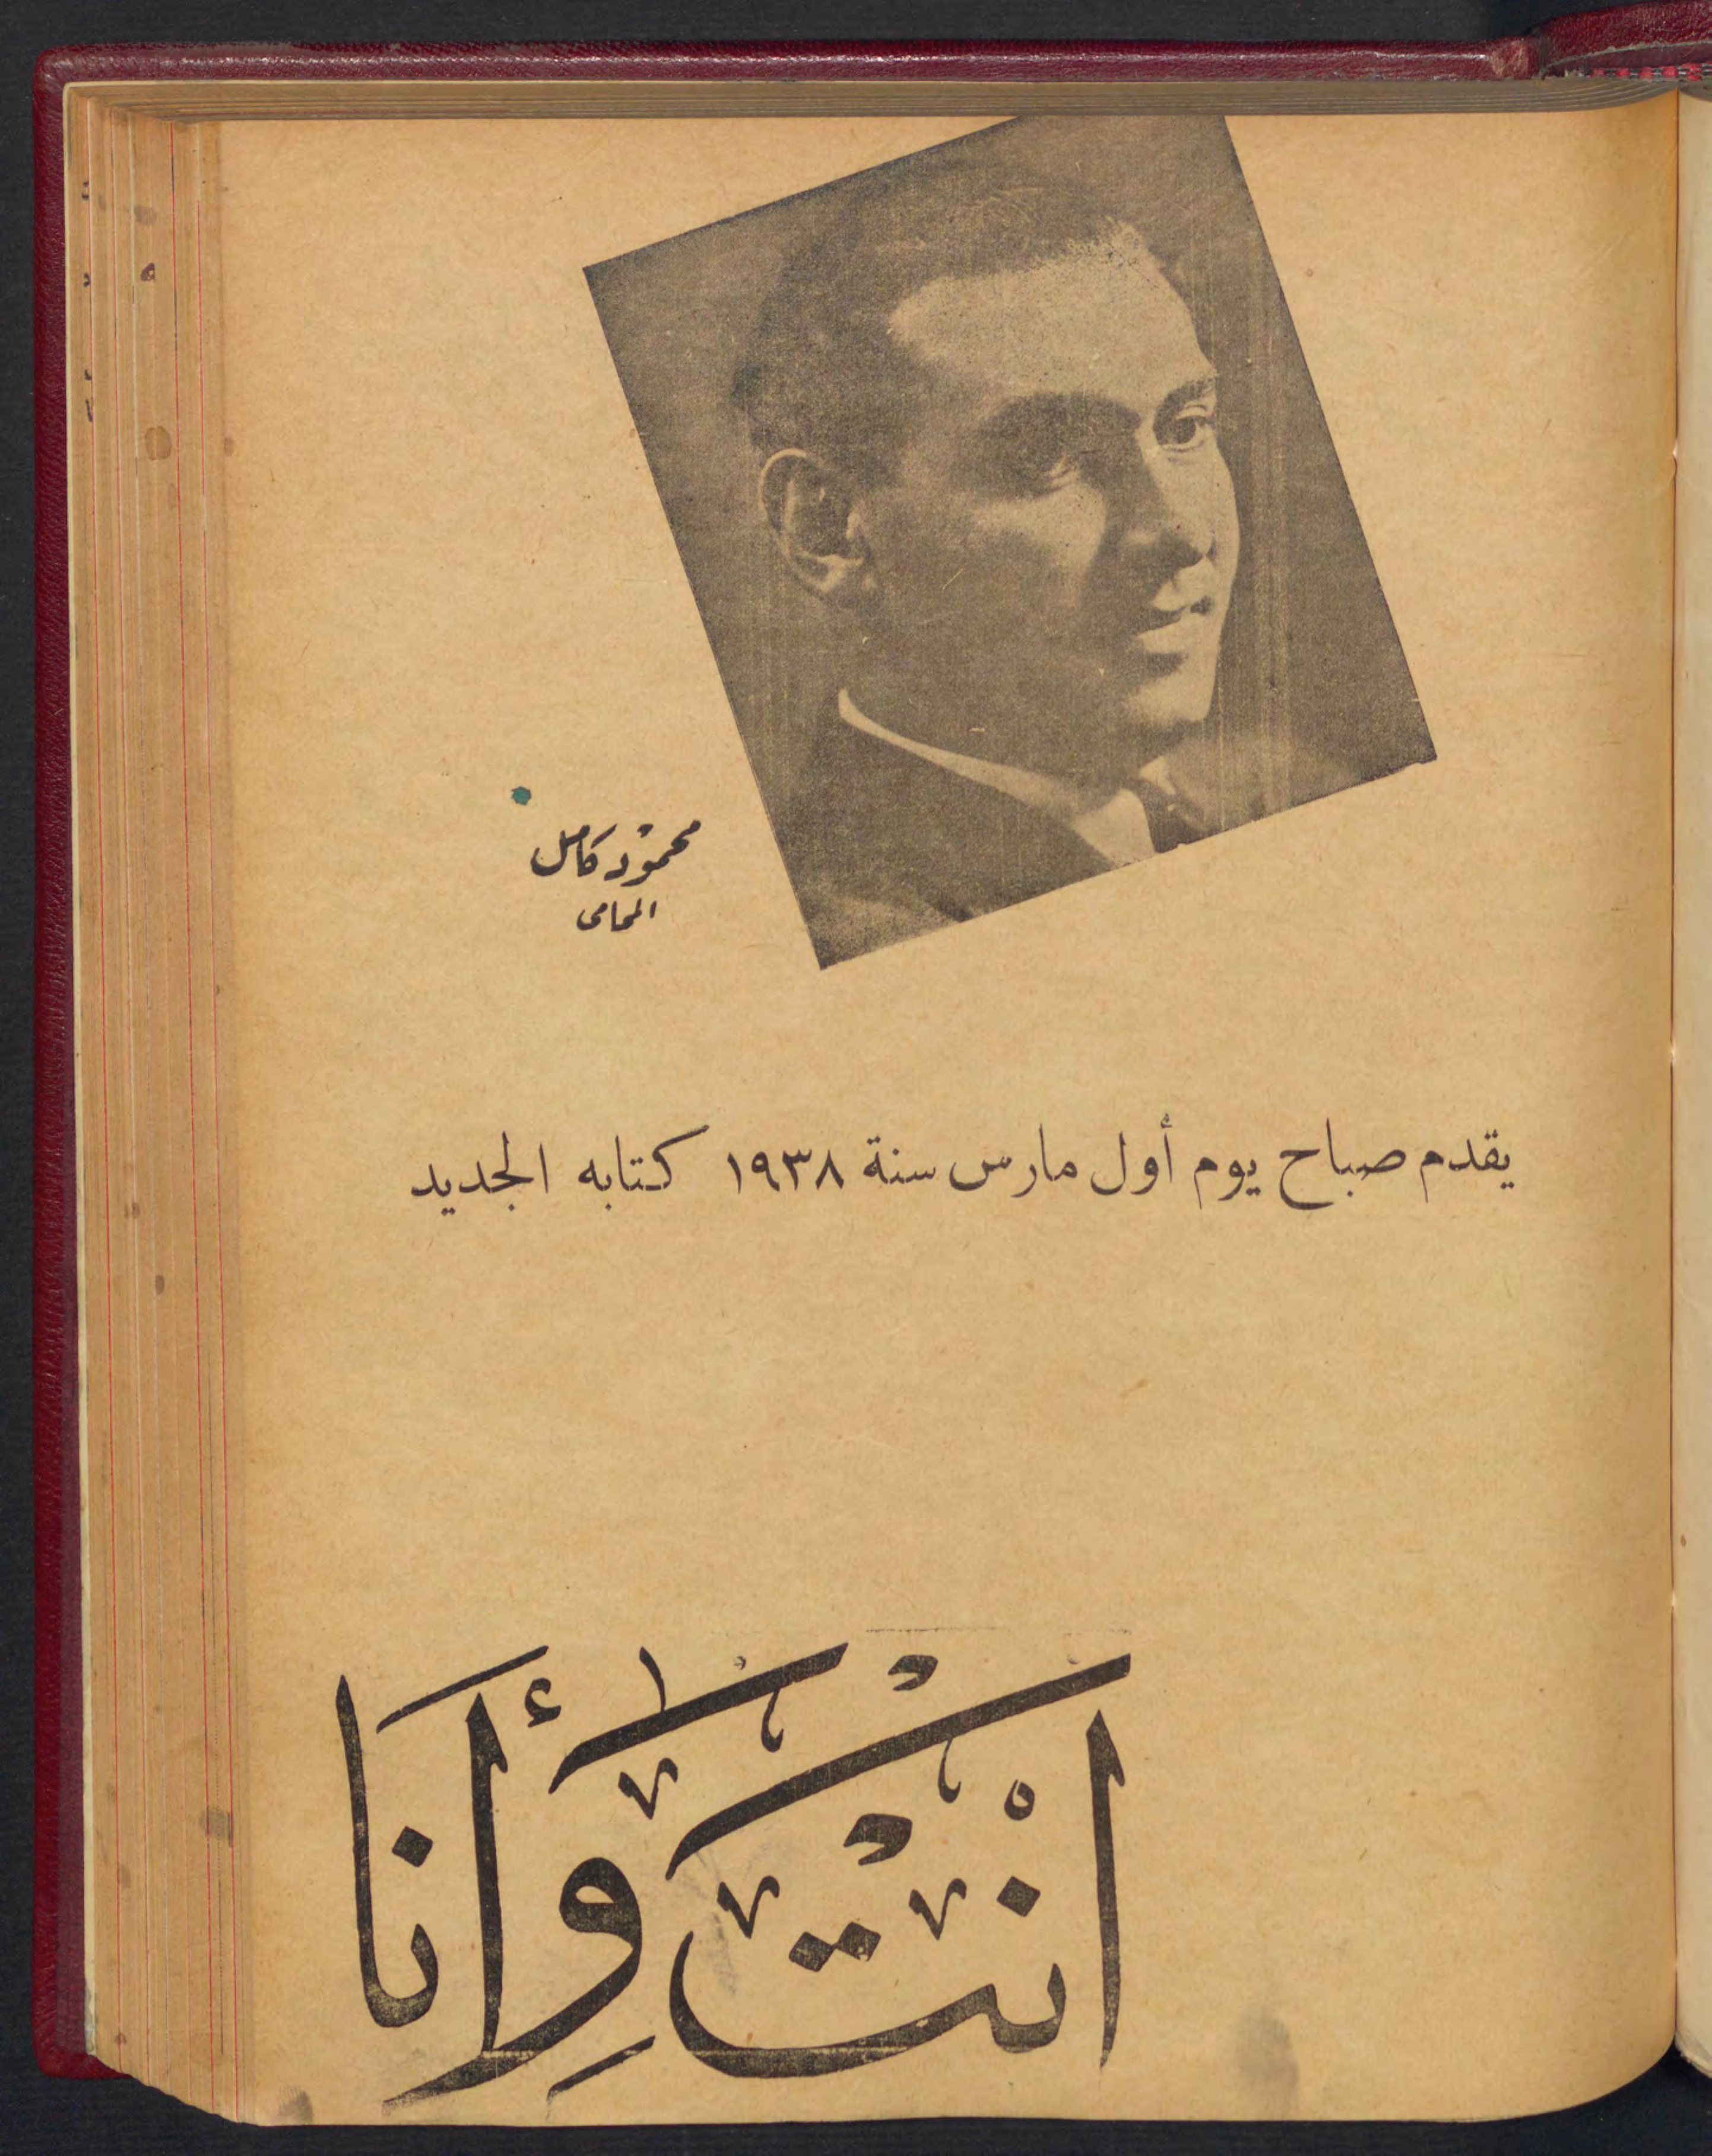 محمود كامل
المحامى
يقدم صباح يوم أول مارس سنة ١٩٣٨ كتابه الجديد
انت وأنا